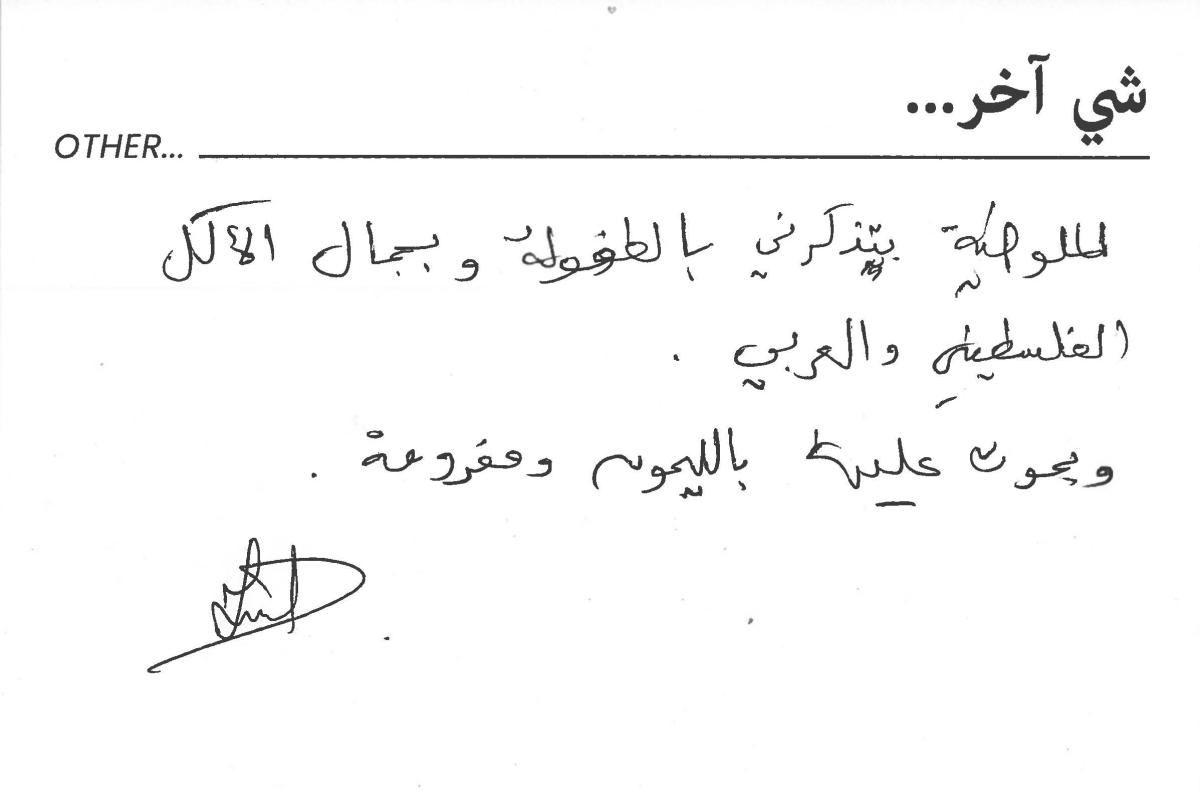 شي آخر...
OTHER...
الملوخية بتذكرني بالطفولة و بجمال الأكل
الفلسطيني والعربي .
وبموت عليها بالليمون ومفرومة .